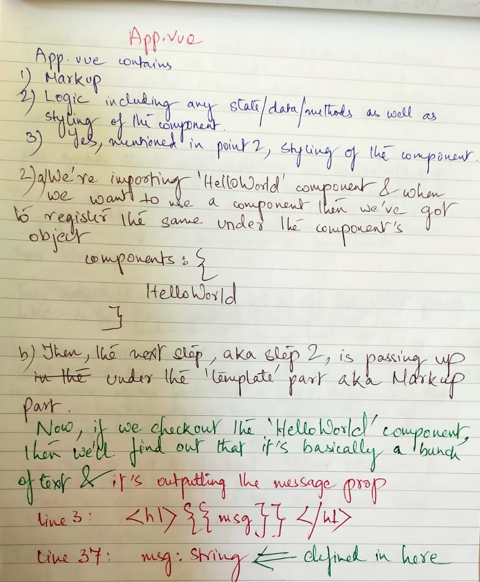 App.vue
App.vue contains
1) Markup
2) Logic including any state/data/methods as well as
styling of the component.
3) Yes, mentioned in point 2, styling of the component.
2)a) We're importing 'HelloWorld' component & when
we want to use a component then we've got
to register the same under the component's
object
components: {
HelloWorld
}
b) Then, the next step, aka step 2, is passing up
in the under the 'template' part aka Markup
part.
Now, if we checkout the 'HelloWorld' component,
then we'll find out that it's basically a bunch
of text & it's outputting the message prop
Line 3: <h1> {{ msg }} </h1>
Line 37: msg: String ⇐ defined in here